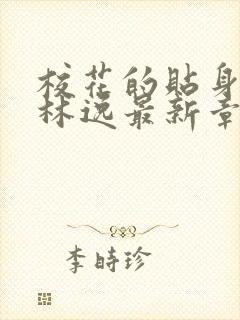 校花的贴身
林逸最新章
李時珍